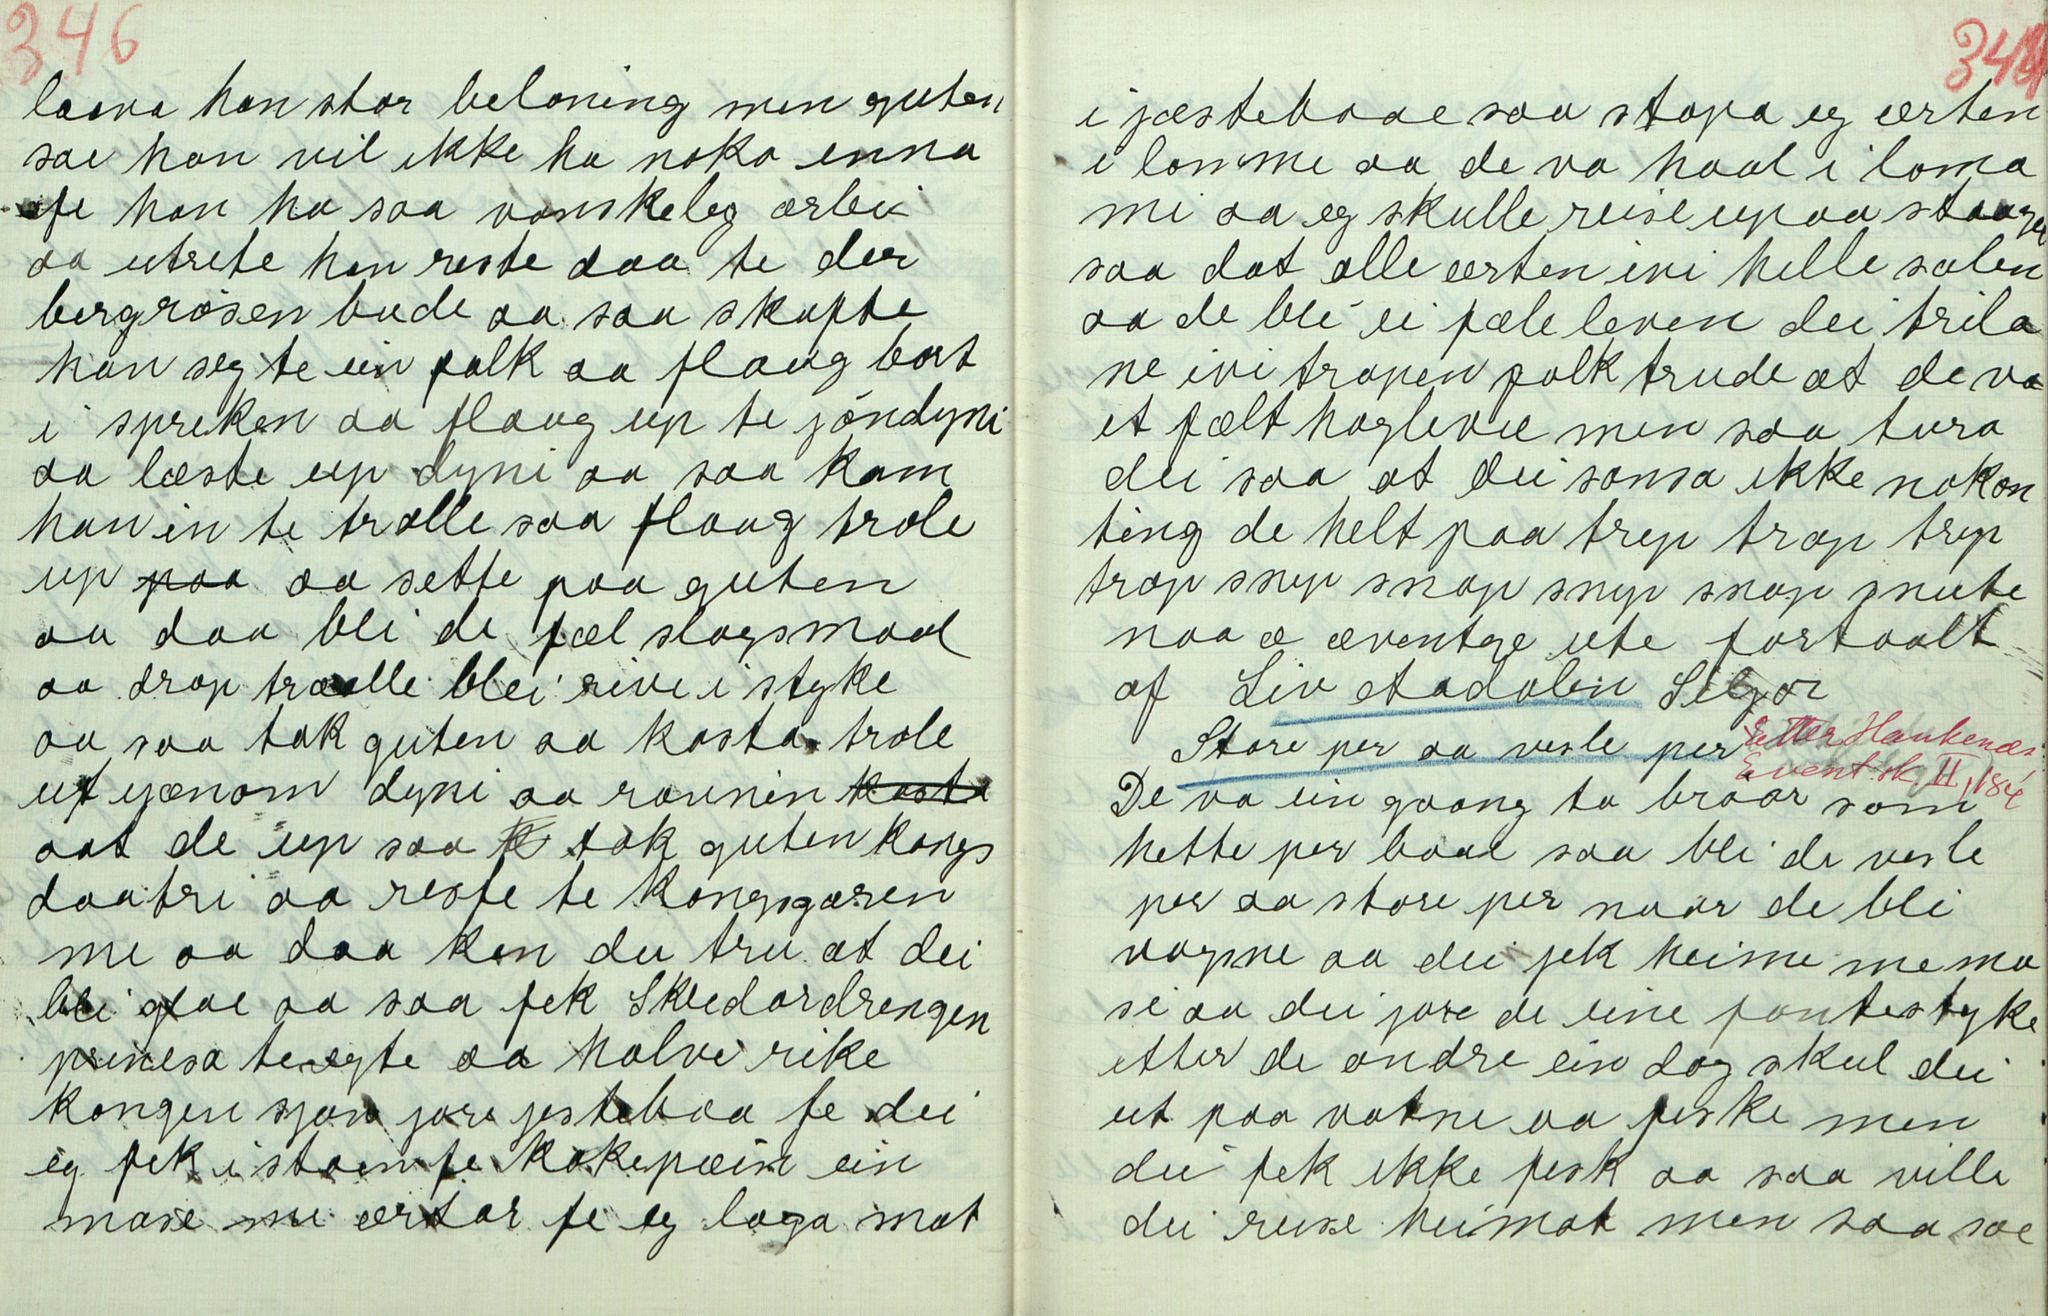 346
laava han stor beloning men guten
sae han vil ikke ha noko enna
fe han ha saa vanskeleg arbei
aa utrete han reste daa te der
bergrosen bude aa saa skapte
han seg te ein falk aa flaug bort
i spreken aa flaug up te jöndyni
aa læste up dyni aa saa kom
han in te trolle saa flaug trole
up paa aa sette paa guten
aa daa blei de fæl slagsmaal
aa drap trolle blei rive i styke
aa saa tok guten aa kasta trole
ut gjænom dyni aa raunin kasta
aat de up saa tok guten kongs
daatri aa reste te kongsgaren
me aa daa kan du tru at dei
blei glae aa saa fek Skredardrengen
prinsesa te egte aa halve rike
kongen sjøn jore jestebaa fe dei
eg fek i staen fe kokepæin ein
mase me ærtar fe eg laga mat
344
i jæstebaae saa stapa eg ærten
i lomme aa de va haal i loma
mi aa eg skulle reise up aa staager
saa dat alle ærten ivi helle salen
aa de blei ei fæle leven dei trila
ne ivi trapen folk trude at de va
et fælt haglever men saa tura
dei saa at dei sansa ikke nokon
ting de helt paa trip trap trip
trap snip snap snip snap snute
naa æ æventyre ute fortaalt
af Liv etadalen Seljor
Store per aa vesle per Etter Haukenæs
Event.sk II, 184
De va ein gaang to brøar som
hette per baae saa blei de vesle
per aa store per naar de blei
vagsne aa dei jek heime me mo
si aa dei jore de eine fantestyke
etter de andre ein dag skul dei
ut paa vatne aa feske men
dei fek ikke fesk aa saa ville
dei reise heimat men saa sae